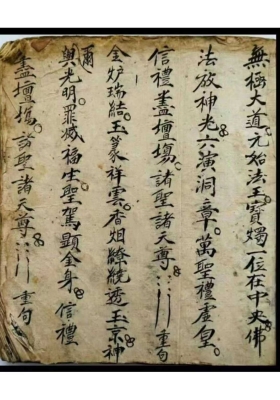 無極大道元始法王寶燭一位在中央佛
法放神光六演洞章萬聖禮虛皇
信禮盡壇塲諸聖諸天尊 重句
金炉瑞結玉篆祥雲香烟繚繞透玉京神
爾與光明罪滅福生聖駕顕金身 信禮
盡壇塲諸聖諸天尊 重句